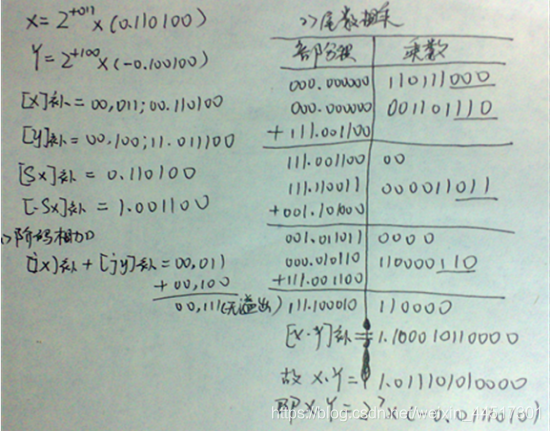 X=2^{+011}×(0.110100)
Y=2^{+100}×(-0.100100)
[X]补=00,011;00.110100
[Y]补=00,100;11.011100
[Sx]补=0.110100
[-Sx]补=1.001100
1)阶码相加
[jx]补+[jy]补=00,011
+00,100
00,111(无溢出)
2)尾数相乘
部分积 乘数
000.000000 110111000
000.000000 001101110
+111.001100
111.001100 00
111.110011 000011011
+001.101000
001.011011 0000
000.010110 110000110
+111.001100
111.100010 110000
[X·Y]补=1.100010110000
故X·Y=1.011101010000
即X·Y=2^7×(-0.011101)